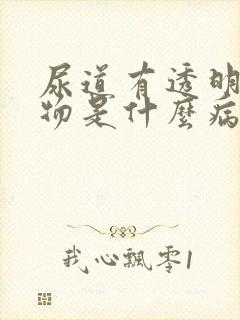 尿道有透明
物是什麼病
我心飄零1